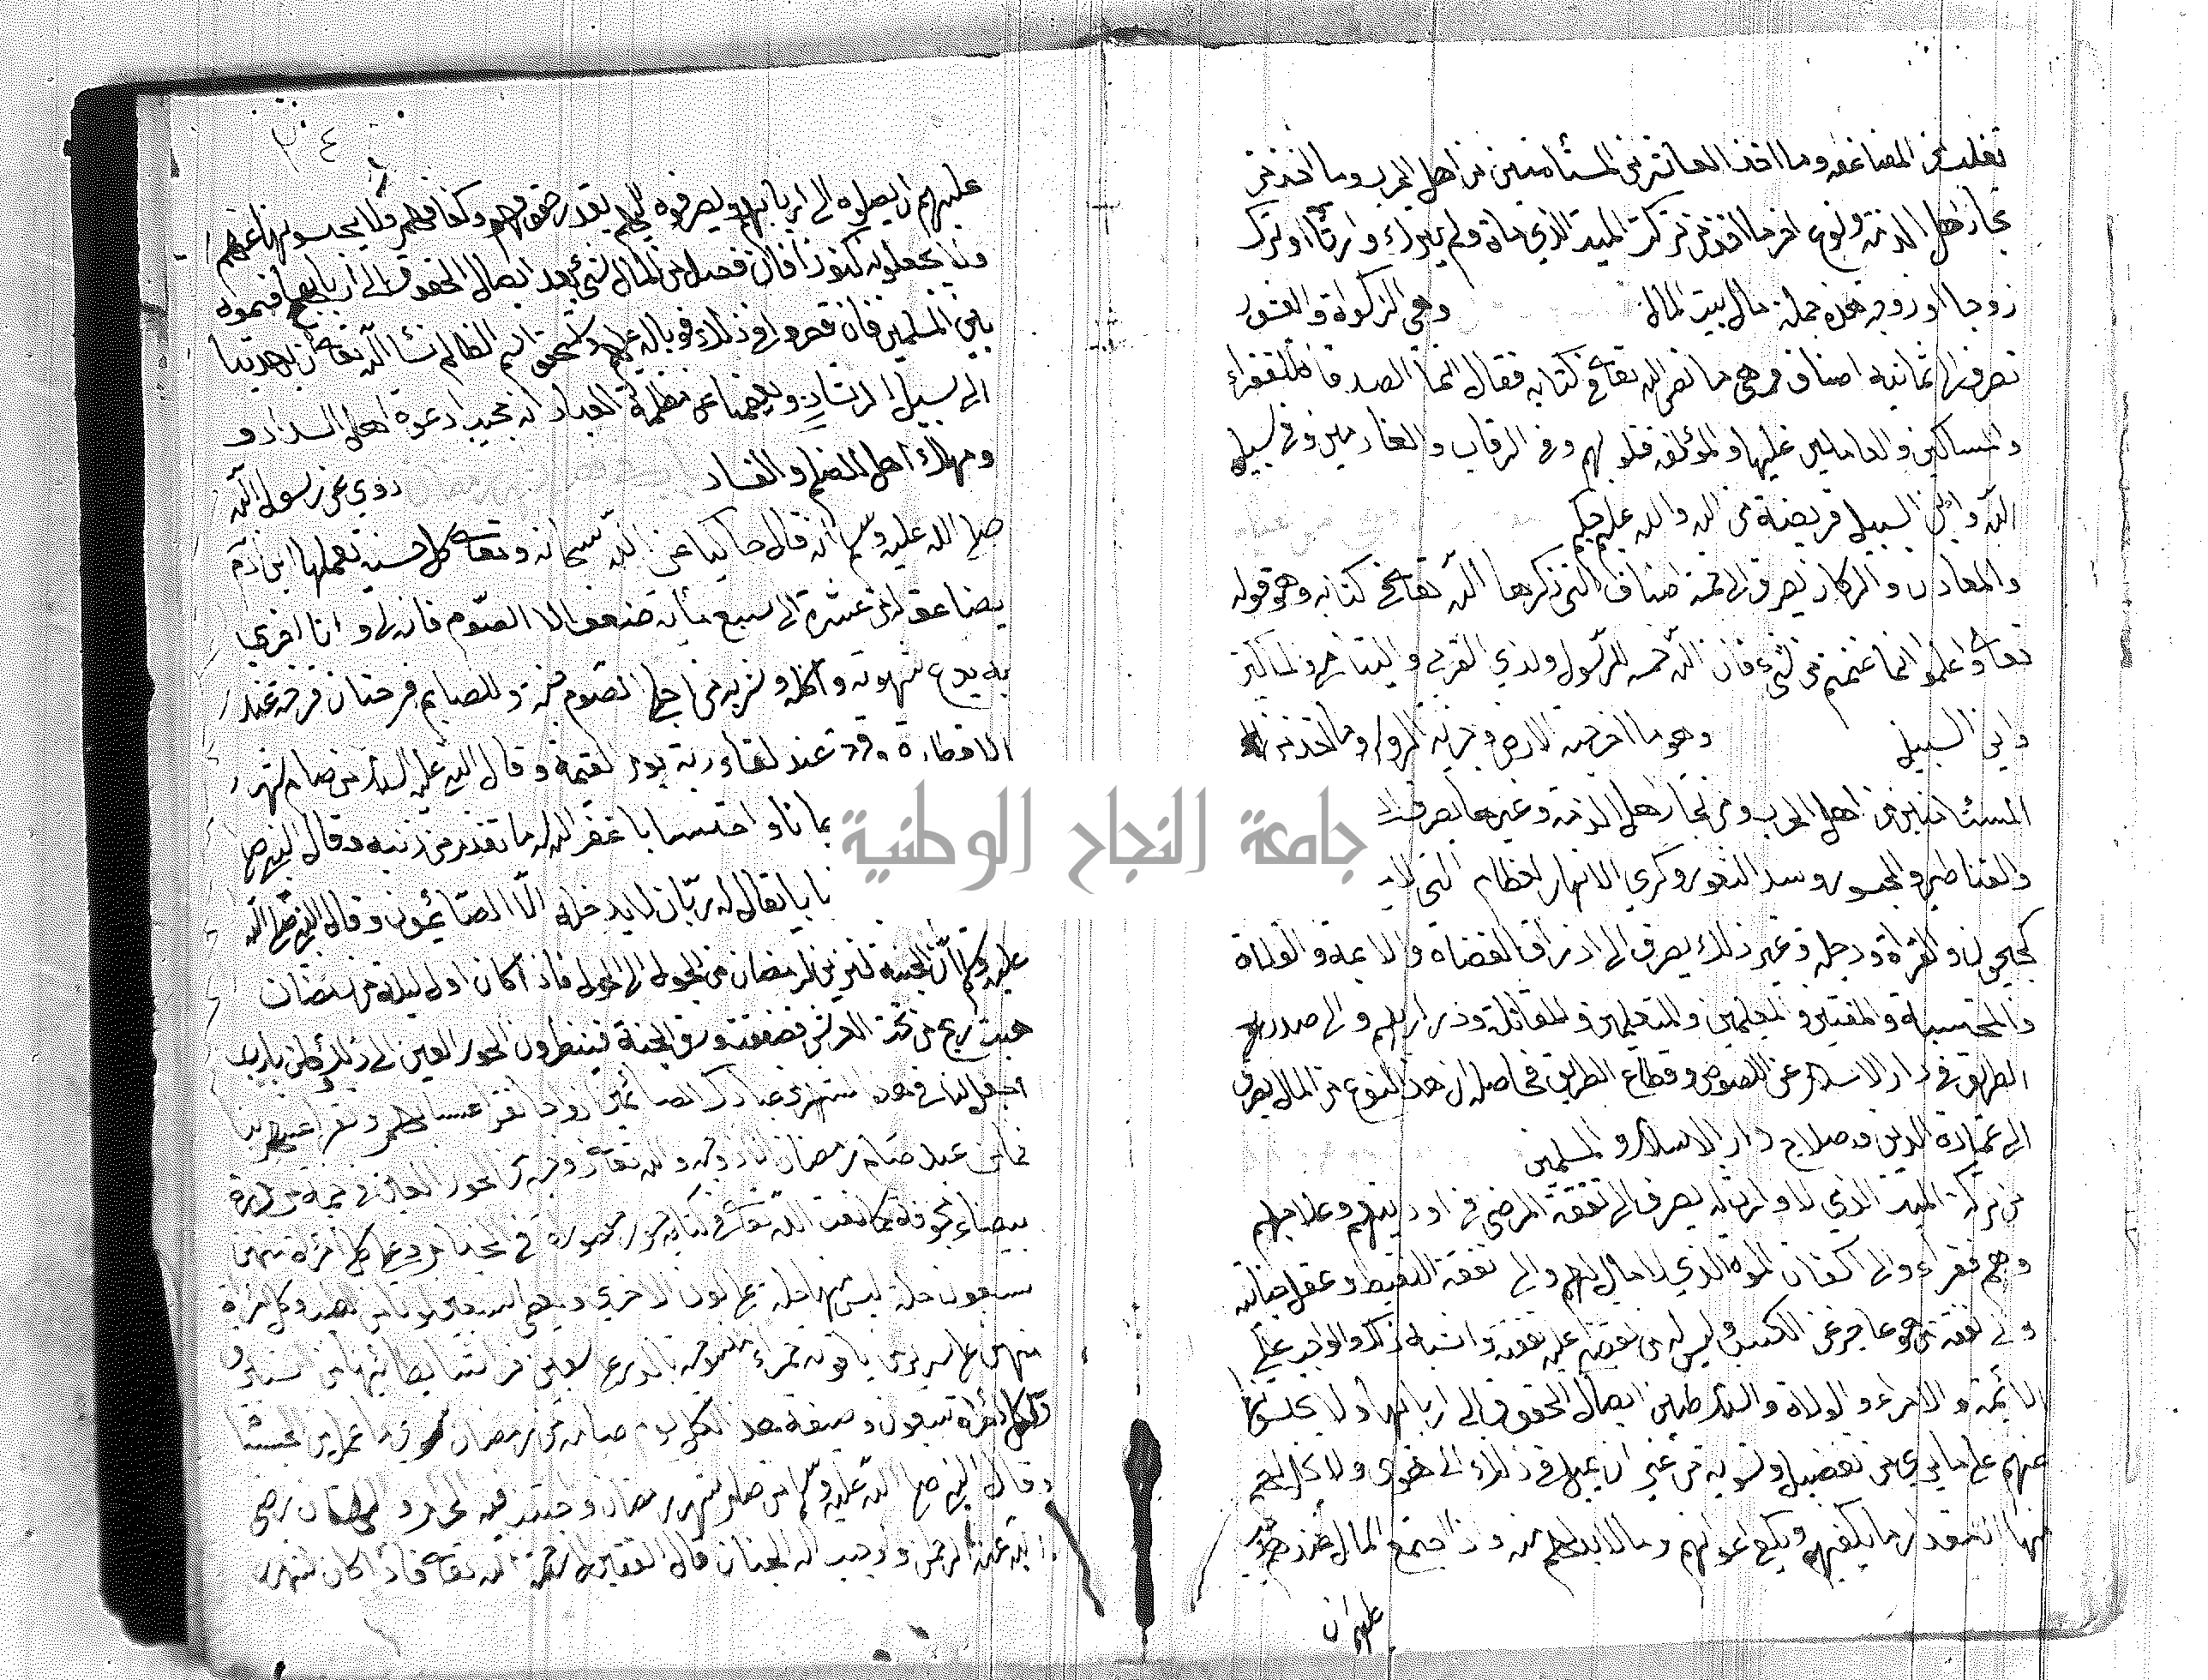 تغلب من المضاعفه وما اخذ العاشر من المستأمنين من اهل الحرب وما اخذ من
تجار اهل الذمة ونوع اخر ما اخذ من تركة الميت الذي مات ولم يترك وارثا او ترك
زوجا او زوجة هذه جملة مال بيت المال وهي الزكوة والعشور
تصرف الى ثمانية اصناف وهي ما نص الله تعالى في كتابه فقال انما الصدقات للفقراء
والمساكين والعاملين عليها والمؤلفة قلوبهم وفي الرقاب والغارمين وفي سبيل
الله وابن السبيل فريضة من الله والله عليم حكيم
والمعادن والركاز يصرف الى خمسة اصناف التي ذكرها الله تعالى في كتابه وهو قوله
تعالى واعلموا انما غنمتم من شئ فان لله خمسه وللرسول ولذي القربى واليتامى والمساكين
وابن السبيل وهو ما اخرجته الارض وجزية الرؤس وما اخذ من
المستأمنين من اهل الحرب ومن تجار اهل الذمة وغيرها يصرف الى
والقناطير والجسور وسد الثغور وكري الانهار العظام التي
كجيحون والفرات ودجلة وغير ذلك يصرف الى ارزاق القضاة والائمة والولاة
والمحتسبة والمفتين والمعلمين والمتعلمين والمقاتلة وذراريهم والى
الطريق في دار الاسلام عن اللصوص وقطاع الطريق فحاصله ان هذا النوع من المال يصرف
الى عمارة الدين وصلاح دار الاسلام والمسلمين
من تركة الميت الذي لا وارث له يصرف الى نفقة المرضى في ادويتهم وعلاجهم
وهم فقراء والى اكفان الموتى الذي لا مال لهم والى نفقة اللقيط وعقل جنايته
والى نفقة من هو عاجز عن الكسب وليس له من يقضى عليه نفقته واشباه ذلك والواجب على
الائمة والامراء والولاة والسلاطين ايصال الحقوق الى اربابها ولا يحبسونها
عنهم على ما يرى من تفضيل وتسوية من غير ان يميل في ذلك الى هوى ولا يحل لهم
منها الا مقدار ما يكفيهم ويكفي اعوانهم وما لا بد لهم منه واذا اجتمع المال عندهم
عليهم ان
٣٠٤
عليهم ان يصلوه الى اربابهم ويصرفوه اليهم بقدر حقوقهم وكفافهم ولا يحبسونها عنهم
ولا يجعلونه كنوزا فان فضل من المال شئ بعد ايصال الحقوق الى اربابها قسموه
بين المسلمين فان قصروا في ذلك فوباله عليهم ويستحق اسم الظالم نسأل الله تعالى ان يهدينا
الى سبيل الرشاد ويعصمنا عن مظلمة العباد انه مجيب دعوة اهل السداد و
ومهلك اهل الظلم والفساد روي عن رسول الله
صلى الله عليه وسلم انه قال حاكيا عن الله سبحانه وتعالى كل حسنة يعملها ابن آدم
يضاعف له من عشرة الى سبع مائة ضعف الا الصوم فانه لي وانا اجزي
به يدع شهوته واكله وشربه من اجلي الصوم جنة وللصايم فرحتان فرحة عند
الافطار وفرحة عند لقاء ربه يوم القيمة وقال النبي عليه السلام من صام شهر
يمانا واحتسابا غفر الله له ما تقدم من ذنبه وقال النبي صلى
بابا يقال له ريان لا يدخله الا الصائمون وقال النبي صلى الله
عليه وسلم ان الجنة لتزين لرمضان من الحول الى الحول فاذا كان اول ليلة من رمضان
هبت ريح من تحت العرش فصفقت ورق الجنة فينظرون الحور العين الى ذلك فقلن يا رب
اجعل لنا في هذا الشهر من عبادك الصائمين ازواجا تقر اعيننا بهم وتقر اعينهم بنا
فما من عبد صام رمضان الا زوجه الله تعالى زوجة من الحور العين في خيمة من درة
بيضاء مجوفة كما نعت الله تعالى في كتابه حور مقصورات في الخيام وعلى كل امرأة منهن
سبعون حلة ليس منها حلة على لون الاخرى
منهن على سرير من ياقوتة حمراء بالدر على سبعين فراشا بطائنها من استبرق
ولكل امرأة سبعون وصيفة هذا لكل يوم صامه من رمضان سوى ما عمل من الحسنات
وقال النبي صلى الله عليه وسلم من صام شهر رمضان واجتنب فيه الحرام والبهتان رضي
عنه الرحمن واوجب له الجنان قال الفقيه رحمه الله تعالى فاذا كان شهر
جامعة النجاح الوطنية